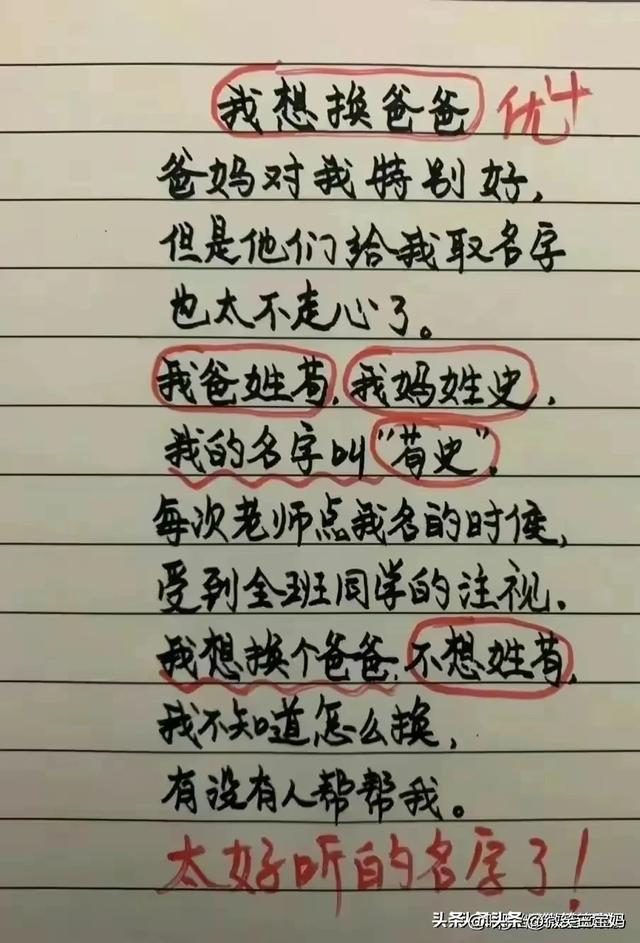 我想换爸爸 优+
爸妈对我特别好,
但是他们给我取名字
也太不走心了。
我爸姓苟,我妈姓史,
我的名字叫"苟史"。
每次老师点我名的时候,
受到全班同学的注视.
我想换个爸爸,不想姓苟,
我不知道怎么换,
有没有人帮帮我。
太好听的名字了!
头条 @微笑